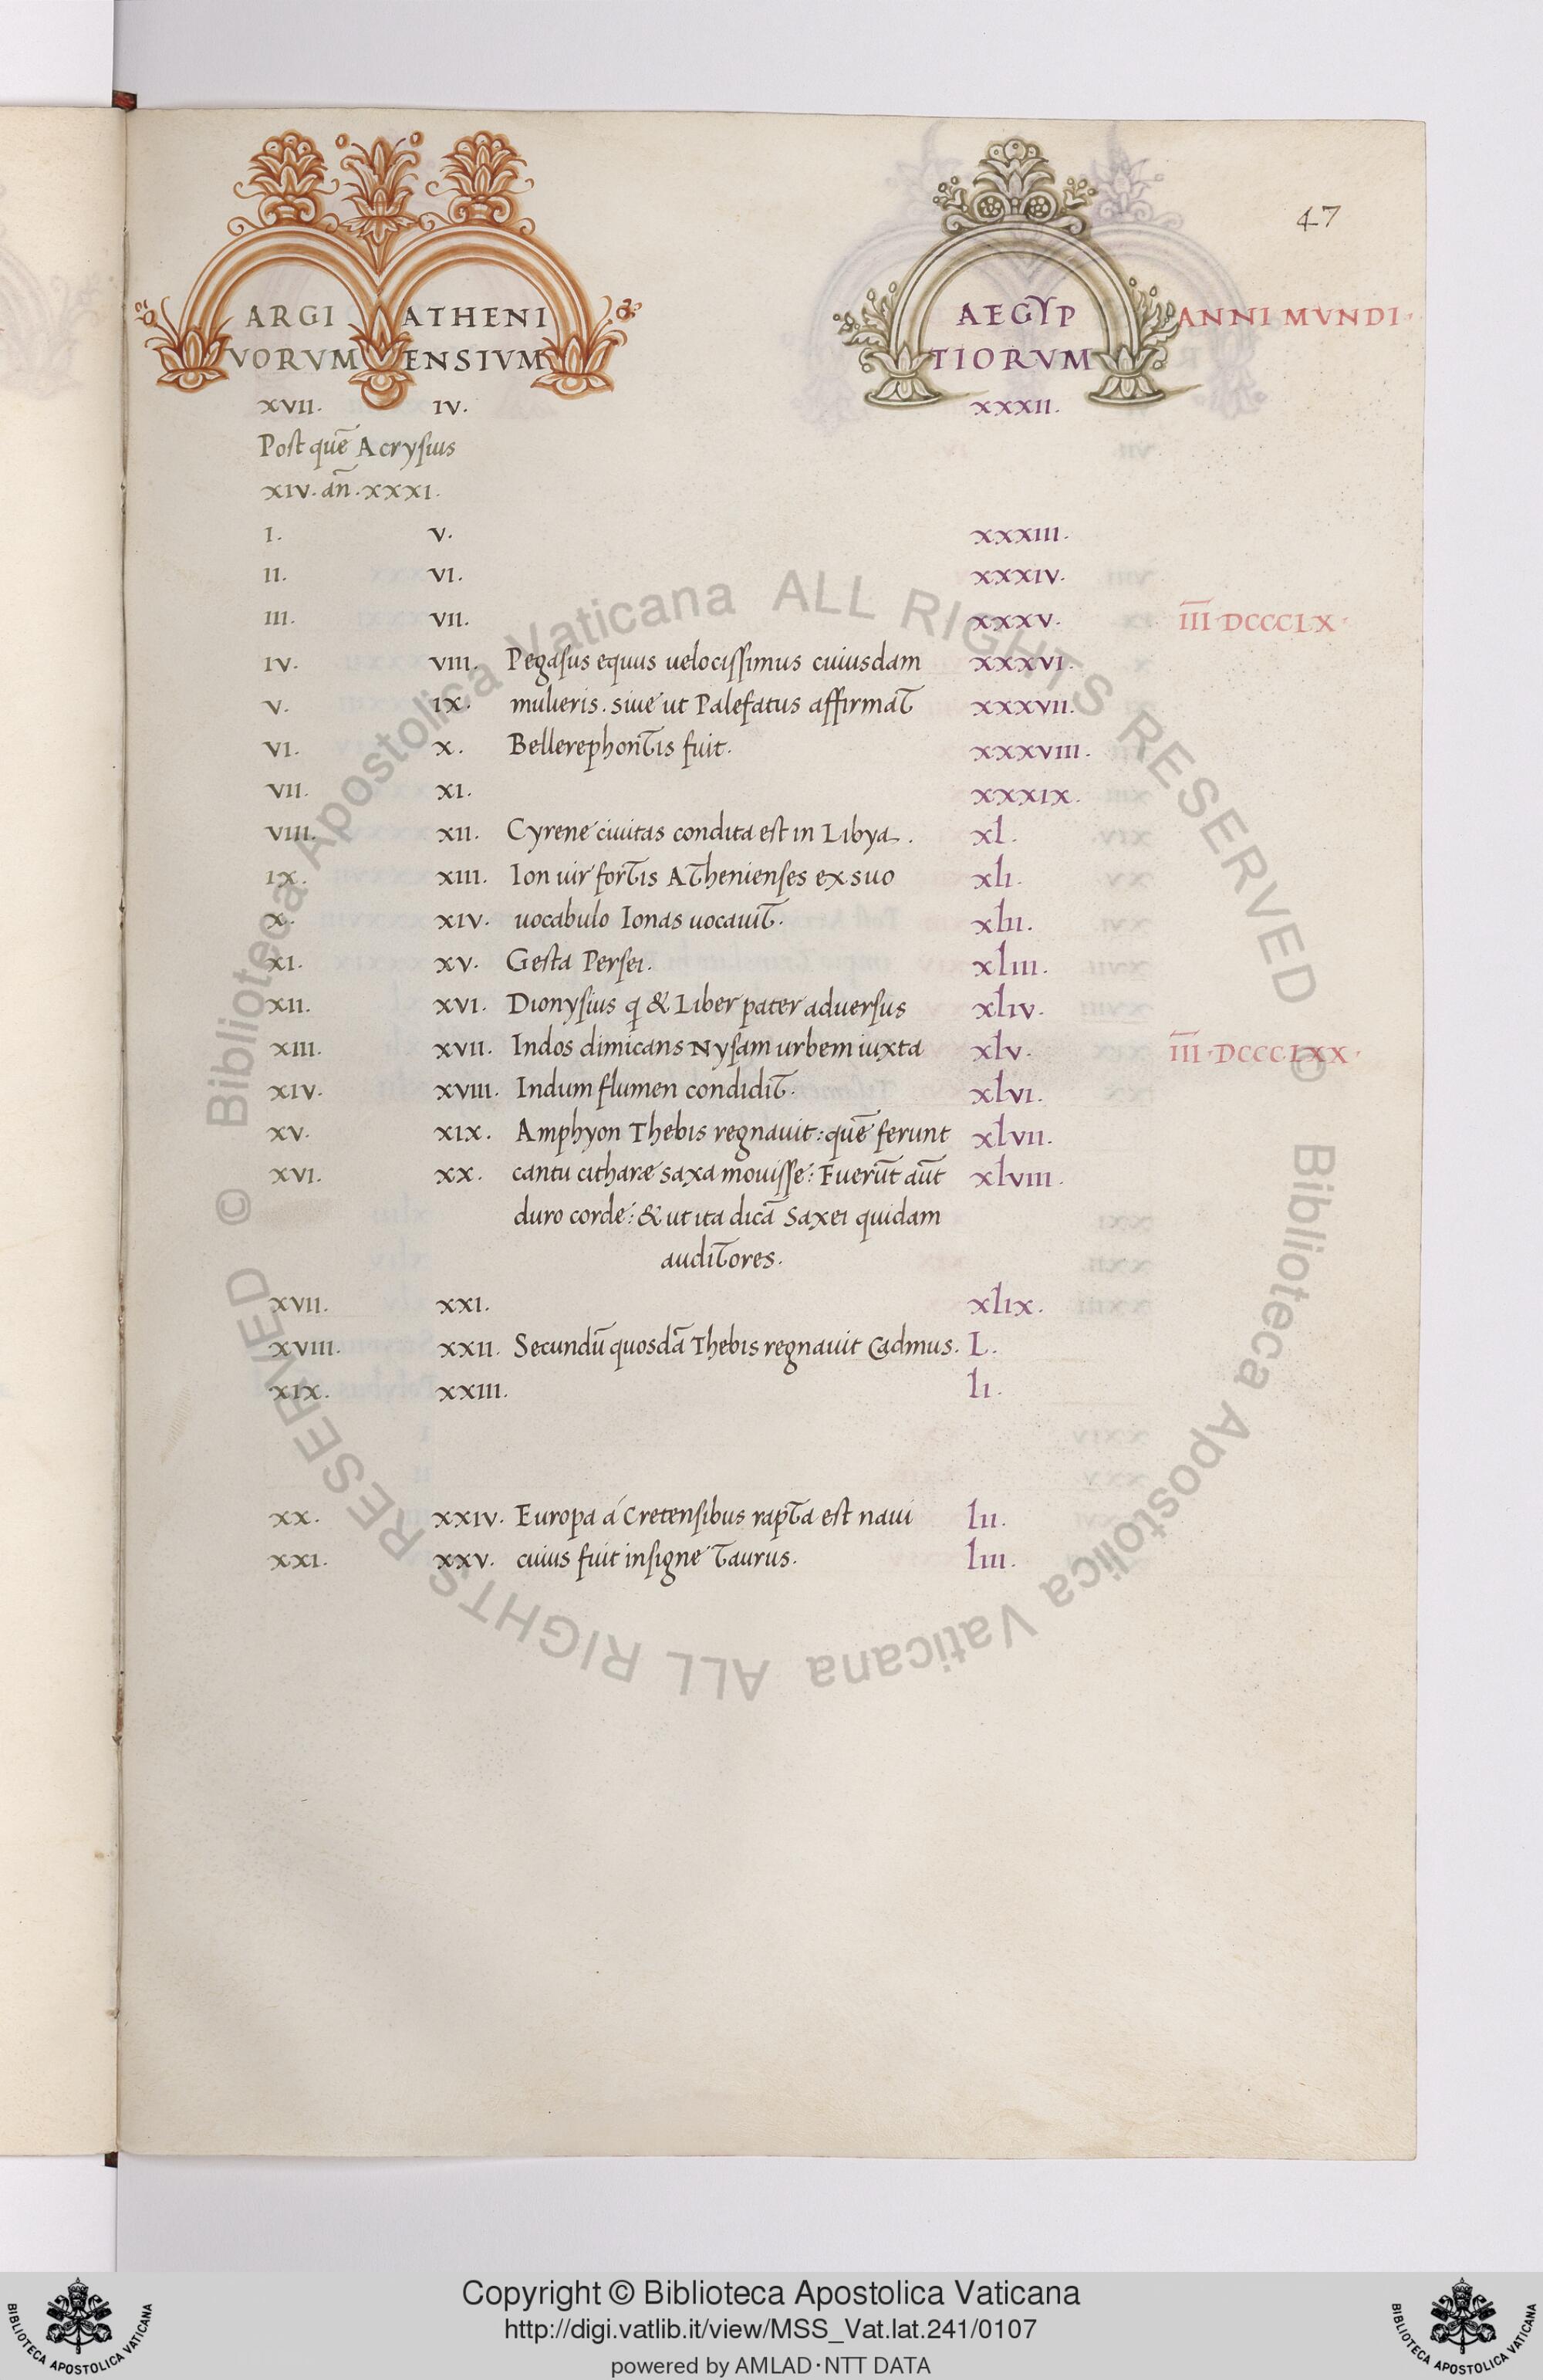 47
ARGI ATHENI AEGYP ANNI MVNDI·
VORVM ENSIVM TIORVM
XVII. IV. XXXII.
Post quē Acrysius
XIV. an̄. XXXI.
I. V. XXXIII.
II. VI. XXXIV.
III. VII. XXXV. I̅I̅I̅·DCCCLX·
IV. VIII. Pegasus equus uelocissimus cuiusdam XXXVI.
V. IX. mulieris. siue ut Palefatus affirmat XXXVII.
VI. X. Bellerephontis fuit. XXXVIII.
VII. XI. XXXIX.
VIII. XII. Cyrene ciuitas condita est in Libya. xl.
IX. XIII. Ion uir fortis Athenienses ex suo xli.
X. XIV. uocabulo Ionas uocauit. xlii.
XI. XV. Gesta Persei. xliii.
XII. XVI. Dionysius q & Liber pater aduersus xliv.
XIII. XVII. Indos dimicans Nysam urbem iuxta xlv. I̅I̅I̅·DCCCLXX·
XIV. XVIII. Indum flumen condidit. xlvi.
XV. XIX. Amphyon Thebis regnauit: quē ferunt xlvii.
XVI. XX. cantu citharæ saxa mouisse: Fuerūt aūt xlviii.
duro corde: & ut ita dicā Saxei quidam
auditores.
XVII. XXI. xlix.
XVIII. XXII. Secundū quosdā Thebis regnauit Cadmus. L.
XIX. XXIII. li.
XX. XXIV. Europa á Cretensibus rapta est naui lii.
XXI. XXV. cuius fuit insigne Taurus. liii.
© Biblioteca Apostolica Vaticana ALL RIGHTS RESERVED
© Biblioteca Apostolica Vaticana ALL RIGHTS RESERVED
Copyright © Biblioteca Apostolica Vaticana
http://digi.vatlib.it/view/MSS_Vat.lat.241/0107
powered by AMLAD·NTT DATA
BIBLIOTECA APOSTOLICA VATICANA
BIBLIOTECA APOSTOLICA VATICANA